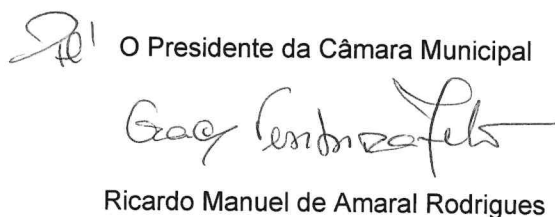 Pel' O Presidente da Câmara Municipal
Ricardo Manuel de Amaral Rodrigues